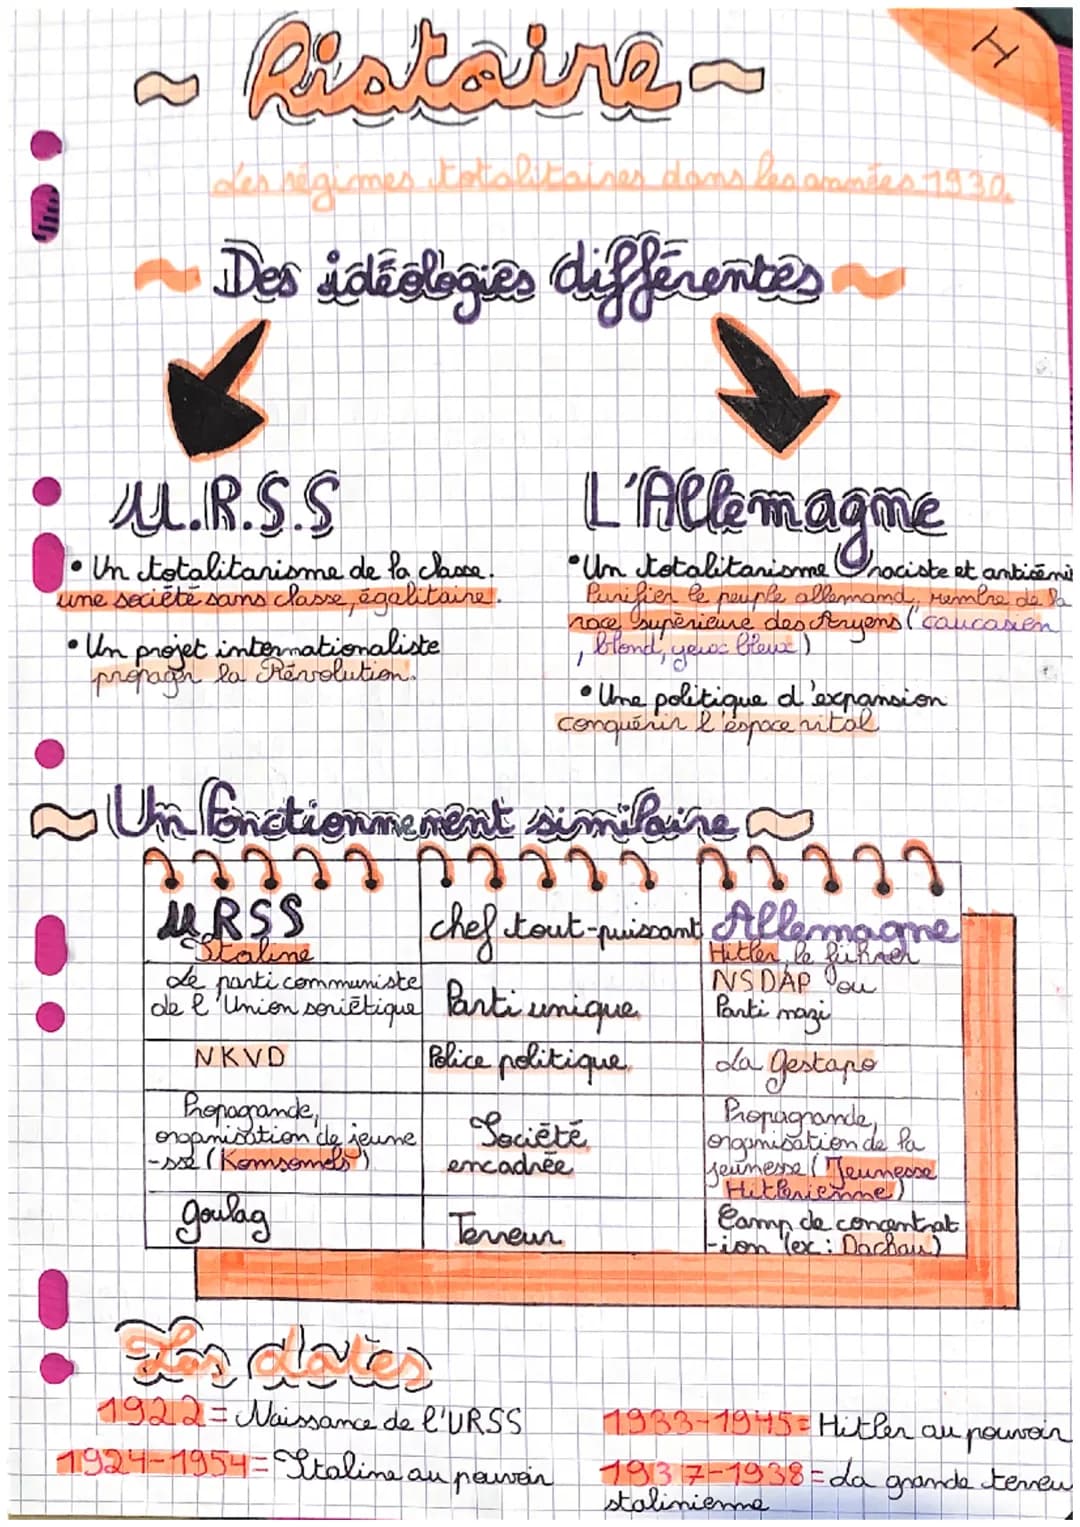 H
~ histoire ~
Les régimes totalitaires dans les années 1930.
~ Des idéologies différentes ~
U.R.S.S
• Un totalitarisme de la classe.
une société sans classe, égalitaire.
• Un projet internationaliste
propager la Révolution.
L'Allemagne
• Un totalitarisme raciste et antisémi
Purifier le peuple allemand, membre de la
race supérieure des Aryens ( caucasien
, blond, yeux bleux )
• Une politique d'expansion
conquérir l'espace vital
~ Un fonctionnement similaire ~
URSS
Staline
chef tout-puissant
Allemagne
Hitler, le führer
Le parti communiste
de l'Union soviétique
Parti unique
NSDAP ou
Parti nazi
NKVD
Police politique
La gestapo
Propagande,
organisation de jeune
-sse (Komsomols)
Société
encadrée
Propagande,
organisation de la
jeunesse (Jeunesse
Hitlerienne)
goulag
Terreur
Camp de concentrat
-ion (ex : Dachau)
Les dates
1922 = Naissance de l'URSS
1924-1954 = Staline au pouvoir
1933-1945 = Hitler au pouvoir
1937-1938 = La grande terreu
stalinienne